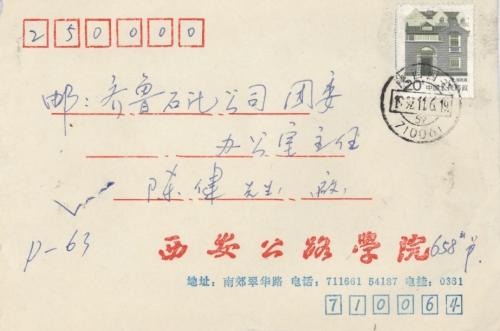 250000
20 中国人民邮政
邮：齐鲁石化公司 团委
11.6.19
710061
办公室主任
陈健 先生 启
P-63
西安公路學院 658#
地址：南郊翠华路 电话：711661 54187 电挂：0381
710064